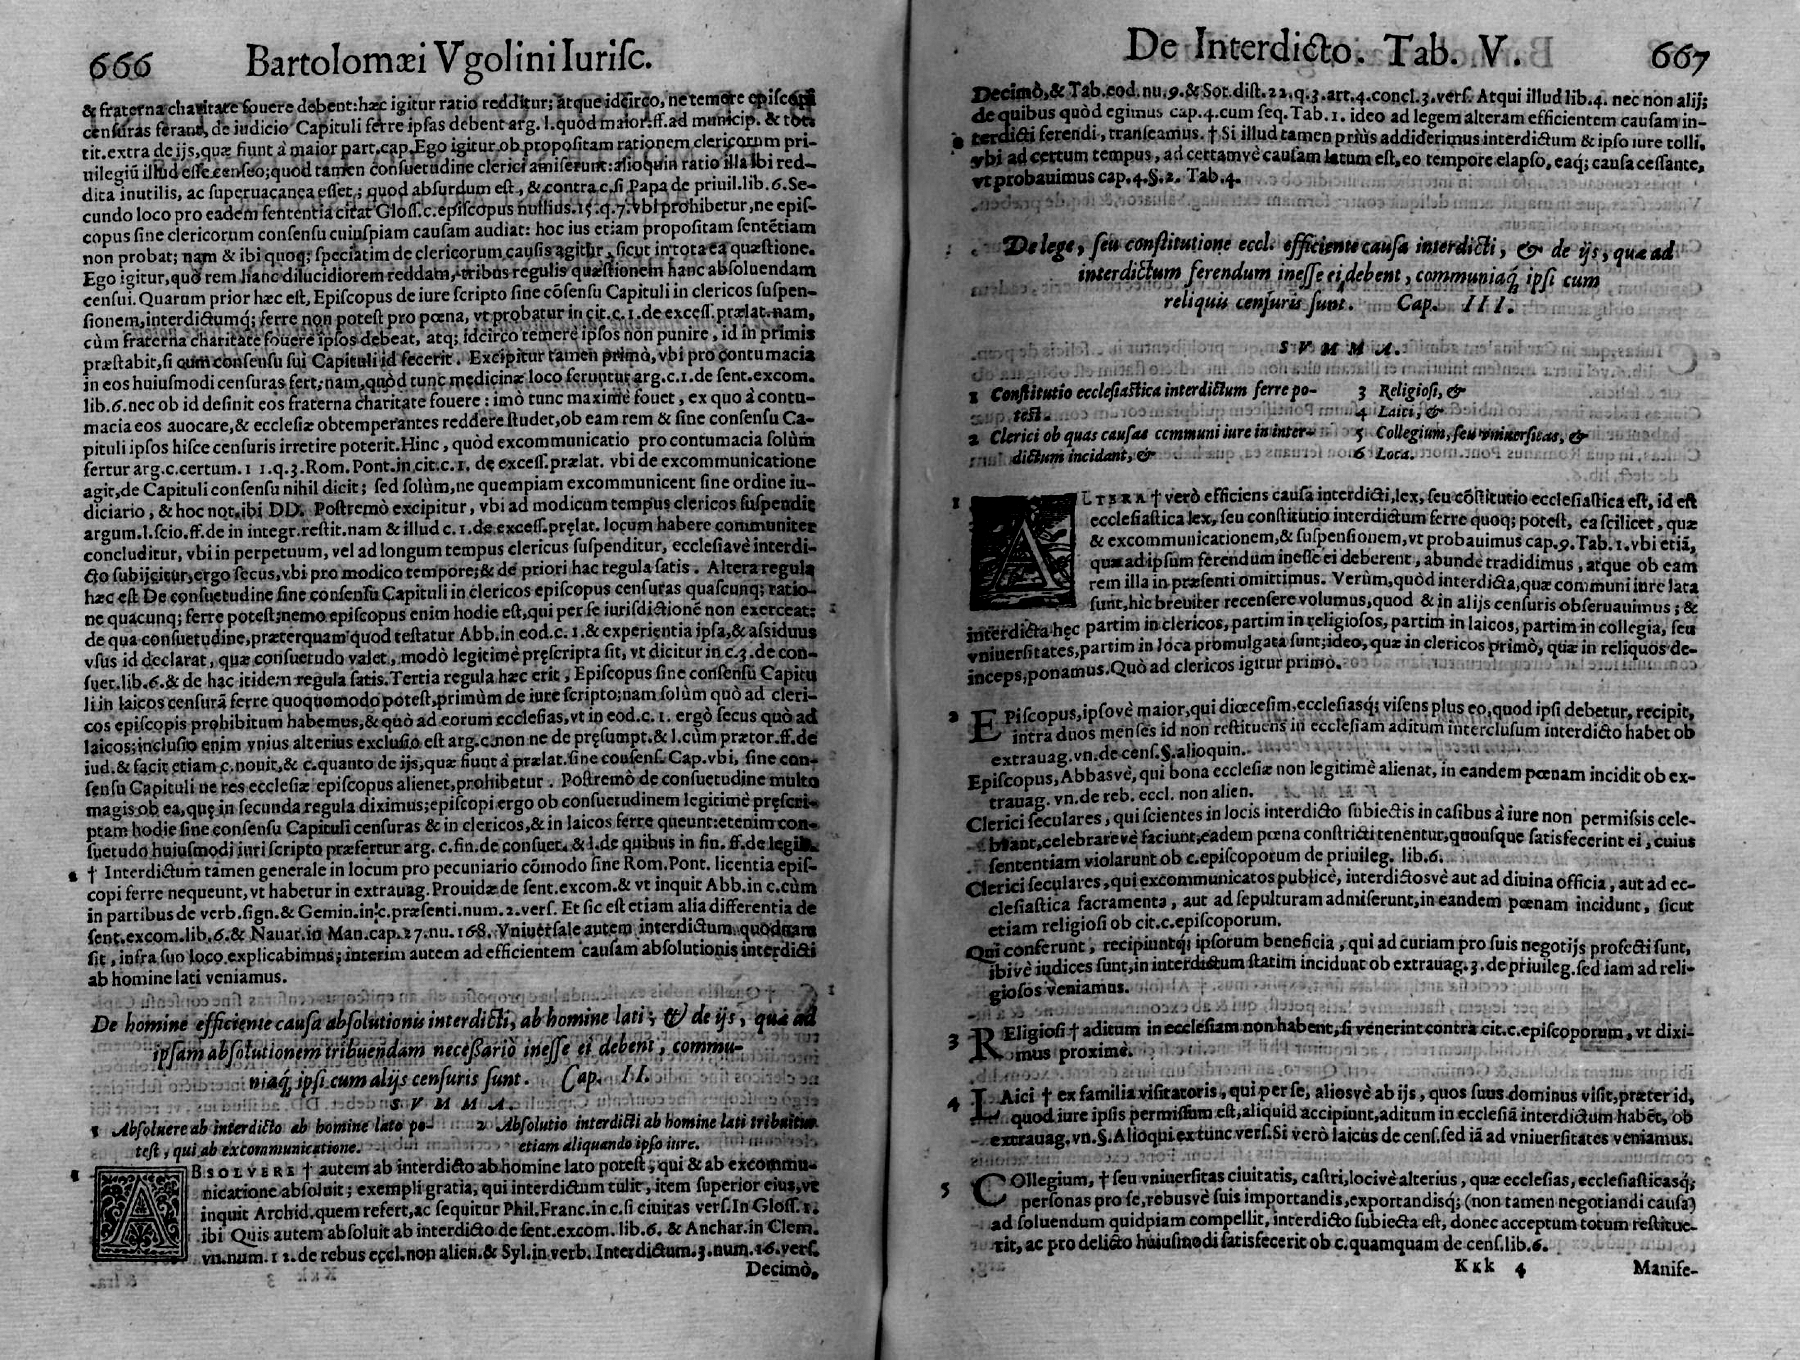 666 Bartolomæi Vgolini Iurisc.
& fraterna charitate fouere debent: hæc igitur ratio redditur; atque idcirco, ne temere episcopi
censuras ferant, de iudicio Capituli ferre ipsas debent arg. l. quod maior. ff. ad municip. & toti
tit. extra de ijs, quæ fiunt à maior part. cap. Ego igitur ob propositam rationem clericorum pri-
uilegiũ illud esse censeo; quod tamen consuetudine clerici amiserunt: alioquin ratio illa ibi red-
dita inutilis, ac superuacanea esset; quod absurdum est, & contra c. si Papa de priuil. lib. 6. Se-
cundo loco pro eadem sententia citat Gloss. c. episcopus nullius. 15. q. 7. vbi prohibetur, ne epis-
copus sine clericorum consensu cuiuspiam causam audiat: hoc ius etiam propositam sentẽtiam
non probat; nam & ibi quoq; speciatim de clericorum causis agitur, sicut in tota ea quæstione.
Ego igitur, quò rem hanc dilucidiorem reddam, tribus regulis quæstionem hanc absoluendam
censui. Quarum prior hæc est, Episcopus de iure scripto sine cõsensu Capituli in clericos suspen-
sionem, interdictumq́; ferre non potest pro pœna, vt probatur in cit. c. 1. de excess. prælat. nam,
cùm fraterna charitate fouere ipsos debeat, atq; idcirco temerè ipsos non punire, id in primis
præstabit, si cum consensu sui Capituli id fecerit. Excipitur tamen primò, vbi pro contumacia
in eos huiusmodi censuras fert; nam, quòd tunc medicinæ loco feruntur arg. c. 1. de sent. excom.
lib. 6. nec ob id definit eos fraterna charitate fouere: imò tunc maximè fouet, ex quo à contu-
macia eos auocare, & ecclesiæ obtemperantes reddere studet, ob eam rem & sine consensu Ca-
pituli ipsos hisce censuris irretire poterit. Hinc, quòd excommunicatio pro contumacia solùm
fertur arg. c. certum. 11. q. 3. Rom. Pont. in cit. c. 1. de excess. prælat. vbi de excommunicatione
agit, de Capituli consensu nihil dicit; sed solùm, ne quempiam excommunicent sine ordine iu-
diciario, & hoc not. ibi DD. Postremò excipitur, vbi ad modicum tempus clericos suspendit
argum. l. scio. ff. de in integr. restit. nam & illud c. 1. de excess. pręlat. locum habere communiter
concluditur, vbi in perpetuum, vel ad longum tempus clericus suspenditur, ecclesiavè interdi-
cto subijcitur, ergo secus, vbi pro modico tempore; & de priori hac regula satis. Altera regula
hæc est De consuetudine sine consensu Capituli in clericos episcopus censuras quascunq; ratio-
ne quacunq; ferre potest; nemo episcopus enim hodie est, qui per se iurisdictionẽ non exerceat:
de qua consuetudine, præterquam quod testatur Abb. in eod. c. 1. & experientia ipsa, & assiduus
vsus id declarat, quæ consuetudo valet, modò legitimè pręscripta sit, vt dicitur in c. 3. de con-
suet. lib. 6. & de hac itidem regula satis. Tertia regula hæc erit, Episcopus sine consensu Capitu
li in laicos censurã ferre quoquomodo potest, primùm de iure scripto; nam solùm quò ad cleri-
cos episcopis prohibitum habemus, & quò ad eorum ecclesias, vt in eod. c. 1. ergò secus quò ad
laicos; inclusio enim vnius alterius exclusio est arg. c. non ne de pręsumpt. & l. cùm prætor. ff. de
iud. & facit etiam c. nouit, & c. quanto de ijs, quæ fiunt à prælat. sine consens. Cap. vbi, sine con-
sensu Capituli ne res ecclesiæ episcopus alienet, prohibetur. Postremò de consuetudine multo
magis ob ea, quę in secunda regula diximus; episcopi ergo ob consuetudinem legitimè pręscri-
ptam hodie sine consensu Capituli censuras & in clericos, & in laicos ferre queunt: etenim con-
suetudo huiusmodi iuri scripto præfertur arg. c. fin. de consuet. & l. de quibus in fin. ff. de legib.
† Interdictum tamen generale in locum pro pecuniario cõmodo sine Rom. Pont. licentia epis-
copi ferre nequeunt, vt habetur in extrauag. Prouidæ de sent. excom. & vt inquit Abb. in c. cùm
in partibus de verb. sign. & Gemin. in c. præsenti. num. 2. vers. Et sic est etiam alia differentia de
sent. excom. lib. 6. & Nauar. in Man. cap. 27. nu. 168. Vniuersale autem interdictum quodnam
sit, infra suo loco explicabimus; interim autem ad efficientem causam absolutionis interdicti
ab homine lati veniamus.
De homine efficiente causa absolutionis interdicti, ab homine lati, & de ijs, quæ ad
ipsam absolutionem tribuendam necessariò inesse ei debent, commu-
niaq́; ipsi cum alijs censuris sunt. Cap. II.
SVMMA.
1 Absoluere ab interdicto ab homine lato po-
test, qui ab excommunicatione.
2 Absolutio interdicti ab homine lati tribuitur
etiam aliquando ipso iure.
1 ABSOLVERE † autem ab interdicto ab homine lato potest, qui & ab excommu-
nicatione absoluit; exempli gratia, qui interdictum tulit, item superior eius, vt
inquit Archid. quem refert, ac sequitur Phil. Franc. in c. si ciuitas vers. In Gloss. 1.
ibi Quis autem absoluit ab interdicto de sent. excom. lib. 6. & Anchar. in Clem.
vn. num. 12. de rebus eccl. non alien. & Syl. in verb. Interdictum. 3. num. 16. vers.
Decimò,
De Interdicto. Tab. V. 667
Decimò, & Tab. eod. nu. 9. & Sot. dist. 22. q. 3. art. 4. concl. 3. vers. Atqui illud lib. 4. nec non alij;
de quibus quòd egimus cap. 4. cum seq. Tab. 1. ideo ad legem alteram efficientem causam in-
terdicti ferendi, transeamus. † Si illud tamen priùs addiderimus interdictum & ipso iure tolli,
vbi ad certum tempus, ad certamvè causam latum est, eo tempore elapso, eaq́; causa cessante,
vt probauimus cap. 4. §. 2. Tab. 4.
De lege, seu constitutione eccl. efficiente causa interdicti, & de ijs, quæ ad
interdictum ferendum inesse ei debent, communiaq́; ipsi cum
reliquis censuris sunt. Cap. III.
SVMMA.
1 Constitutio ecclesiastica interdictum ferre po-
test.
2 Clerici ob quas causas communi iure in inter-
dictum incidant, &
3 Religiosi, &
4 Laici, &
5 Collegium, seu vniuersitas, &
6 Loca.
1 ALTERA † verò efficiens causa interdicti, lex, seu cõstitutio ecclesiastica est, id est
ecclesiastica lex, seu constitutio interdictum ferre quoq; potest, ea scilicet, quæ
& excommunicationem, & suspensionem, vt probauimus cap. 9. Tab. 1. vbi etiã,
quæ ad ipsum ferendum inesse ei deberent, abundè tradidimus, atque ob eam
rem illa in præsenti omittimus. Verùm, quòd interdicta, quæ communi iure lata
sunt, hìc breuiter recensere volumus, quod & in alijs censuris obseruauimus; &
interdicta hęc partim in clericos, partim in religiosos, partim in laicos, partim in collegia, seu
vniuersitates, partim in loca promulgata sunt; ideo, quæ in clericos primò, quæ in reliquos de-
inceps, ponamus. Quò ad clericos igitur primò.
2 EPiscopus, ipsovè maior, qui diœcesim, ecclesiasq́; visens plus eo, quod ipsi debetur, recipit,
intra duos menses id non restituens in ecclesiam aditum interclusum interdicto habet ob
extrauag. vn. de cens. §. alioquin.
Episcopus, Abbasvè, qui bona ecclesiæ non legitimè alienat, in eandem pœnam incidit ob ex-
trauag. vn. de reb. eccl. non alien.
Clerici seculares, qui scientes in locis interdicto subiectis in casibus à iure non permissis cele-
brant, celebrarevè faciunt, eadem pœna constricti tenentur, quousque satisfecerint ei, cuius
sententiam violarunt ob c. episcoporum de priuileg. lib. 6.
Clerici seculares, qui excommunicatos publicè, interdictosvè aut ad diuina officia, aut ad ec-
clesiastica sacramenta, aut ad sepulturam admiserunt, in eandem pœnam incidunt, sicut
etiam religiosi ob cit. c. episcoporum.
Qui conferunt, recipiuntq́; ipsorum beneficia, qui ad curiam pro suis negotijs profecti sunt,
ibivè iudices sunt, in interdictum statim incidunt ob extrauag. 3. de priuileg. sed iam ad reli-
giosos veniamus.
3 REligiosi † aditum in ecclesiam non habent, si venerint contra cit. c. episcoporum, vt dixi-
mus proximè.
4 LAici † ex familia visitatoris, qui per se, aliosvè ab ijs, quos suus dominus visit, præter id,
quod iure ipsis permissum est, aliquid accipiunt, aditum in ecclesiã interdictum habẽt, ob
extrauag. vn. §. Alioqui ex tunc vers. Si verò laicus de cens. sed iã ad vniuersitates veniamus.
5 COllegium, † seu vniuersitas ciuitatis, castri, locivè alterius, quæ ecclesias, ecclesiasticasq́;
personas pro se, rebusvè suis importandis, exportandisq́; (non tamen negotiandi causa)
ad soluendum quidpiam compellit, interdicto subiecta est, donec acceptum totum restitue-
rit, ac pro delicto huiusmodi satisfecerit ob c. quamquam de cens. lib. 6.
Kkk 4 Manife-